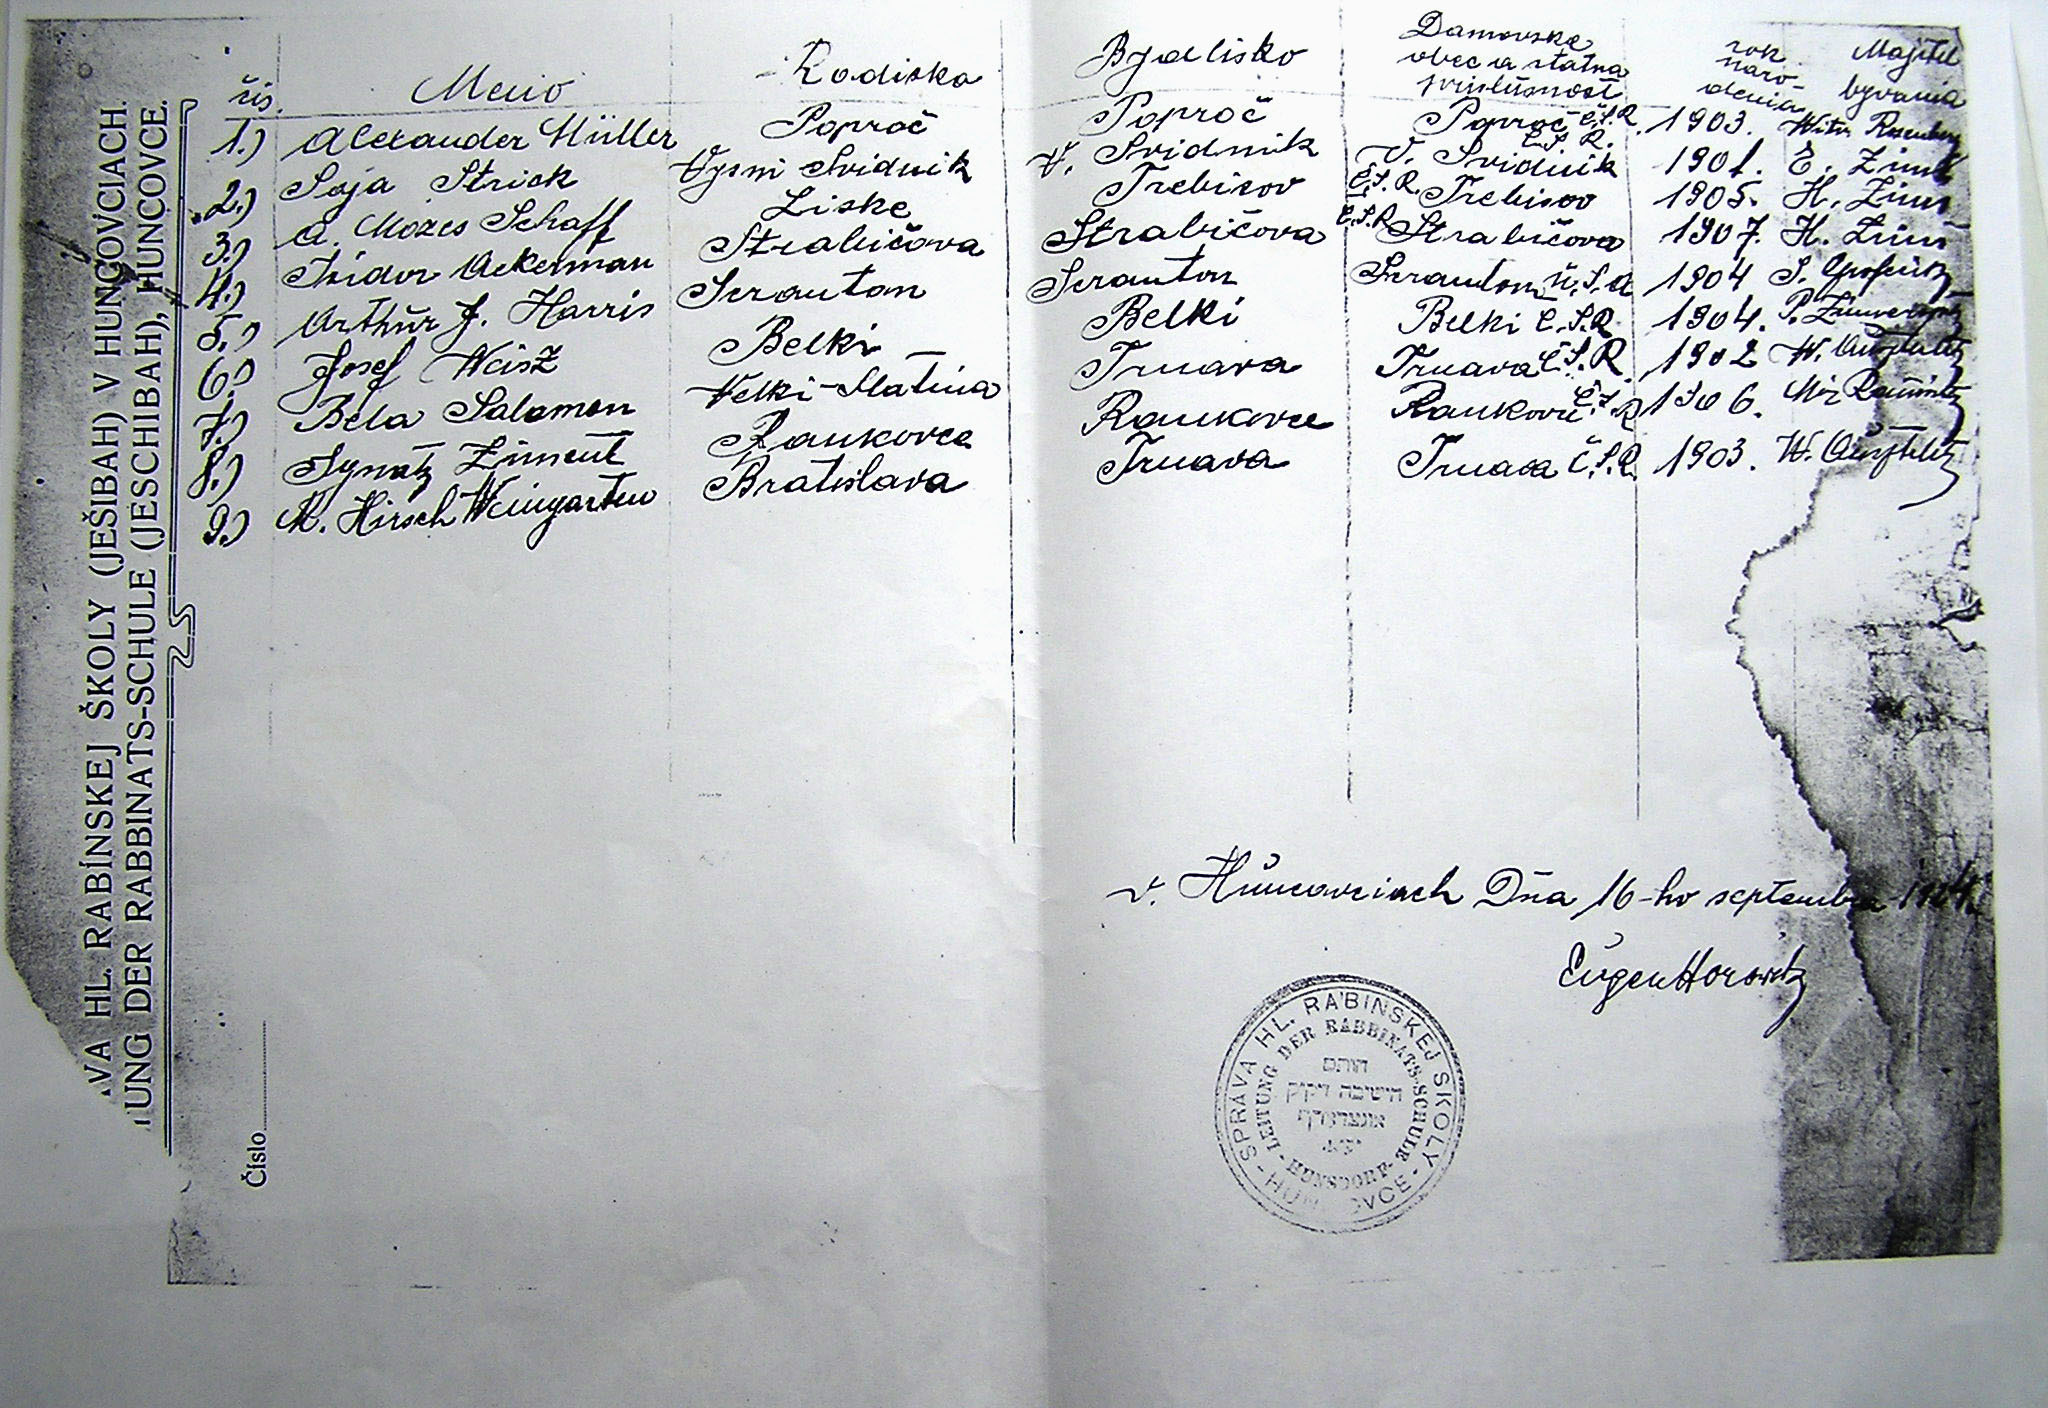 VA HL. RABÍNSKEJ ŠKOLY (JEŠIBAH) V HUNGOVCIACH.
UNG DER RABBINATS-SCHULE (JESCHIBAH), HUNCOVCE.
Číslo
čis. Meno Rodiska Bydlisko Damovska obec a statna prislusnost rok naro denia Majitel byvania
1.) Alexander Müller Poproč Poproč Poproč Č.S.R. 1903. Rosenberg
2.) Saja Strick Vysni Svidnik V. Svidnik V. Svidnik Č.S.R. 1901. E.
3.) A. Mozes Schaff Liske Trebisov Č.S.R. Trebisov 1905. H.
4.) Isidor Ackerman Strabičova Strabičova Č.S.R. Strabičova 1907. H.
5.) Arthur J. Harris Scranton Scranton Scranton U.S.A 1904 S.
6.) Josef Weisz Belki Belki Belki Č.S.R. 1904. P.
7.) Bela Salamon Velki-Slatina Trnava Trnava Č.S.R. 1902 W.
8.) Ignatz Ziment Rankovce Rankovce Rankovce Č.S.R 1906.
9.) M. Hirsch Weingarten Bratislava Trnava Trnava Č.S.R. 1903. W.
v. Huncovciach Dňa 16-ho septembra
Eugen Horowitz
SPRÁVA HL. RABINSKEJ SKOLY
LEITUNG DER RABBINATS-SCHULE
HUNSDORF
חותם
הישיבה דקק
אונצדורף
יצו